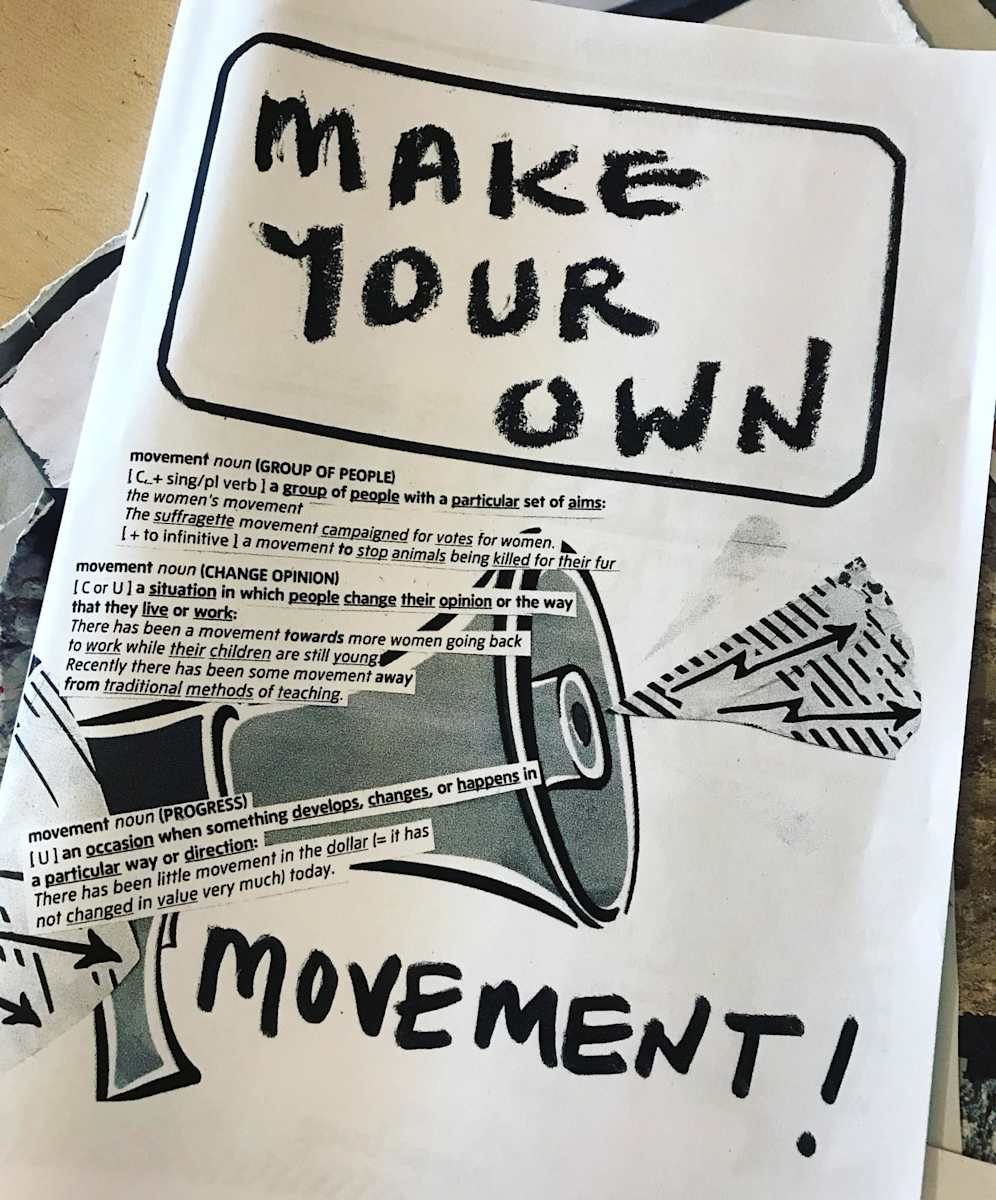 MAKE
YOUR
OWN
movement noun (GROUP OF PEOPLE)
[ C, + sing/pl verb ] a group of people with a particular set of aims:
the women's movement
The suffragette movement campaigned for votes for women.
[ + to infinitive ] a movement to stop animals being killed for their fur
movement noun (CHANGE OPINION)
[ C or U ] a situation in which people change their opinion or the way
that they live or work:
There has been a movement towards more women going back
to work while their children are still young.
Recently there has been some movement away
from traditional methods of teaching.
movement noun (PROGRESS)
[ U ] an occasion when something develops, changes, or happens in
a particular way or direction:
There has been little movement in the dollar (= it has
not changed in value very much) today.
MOVEMENT!